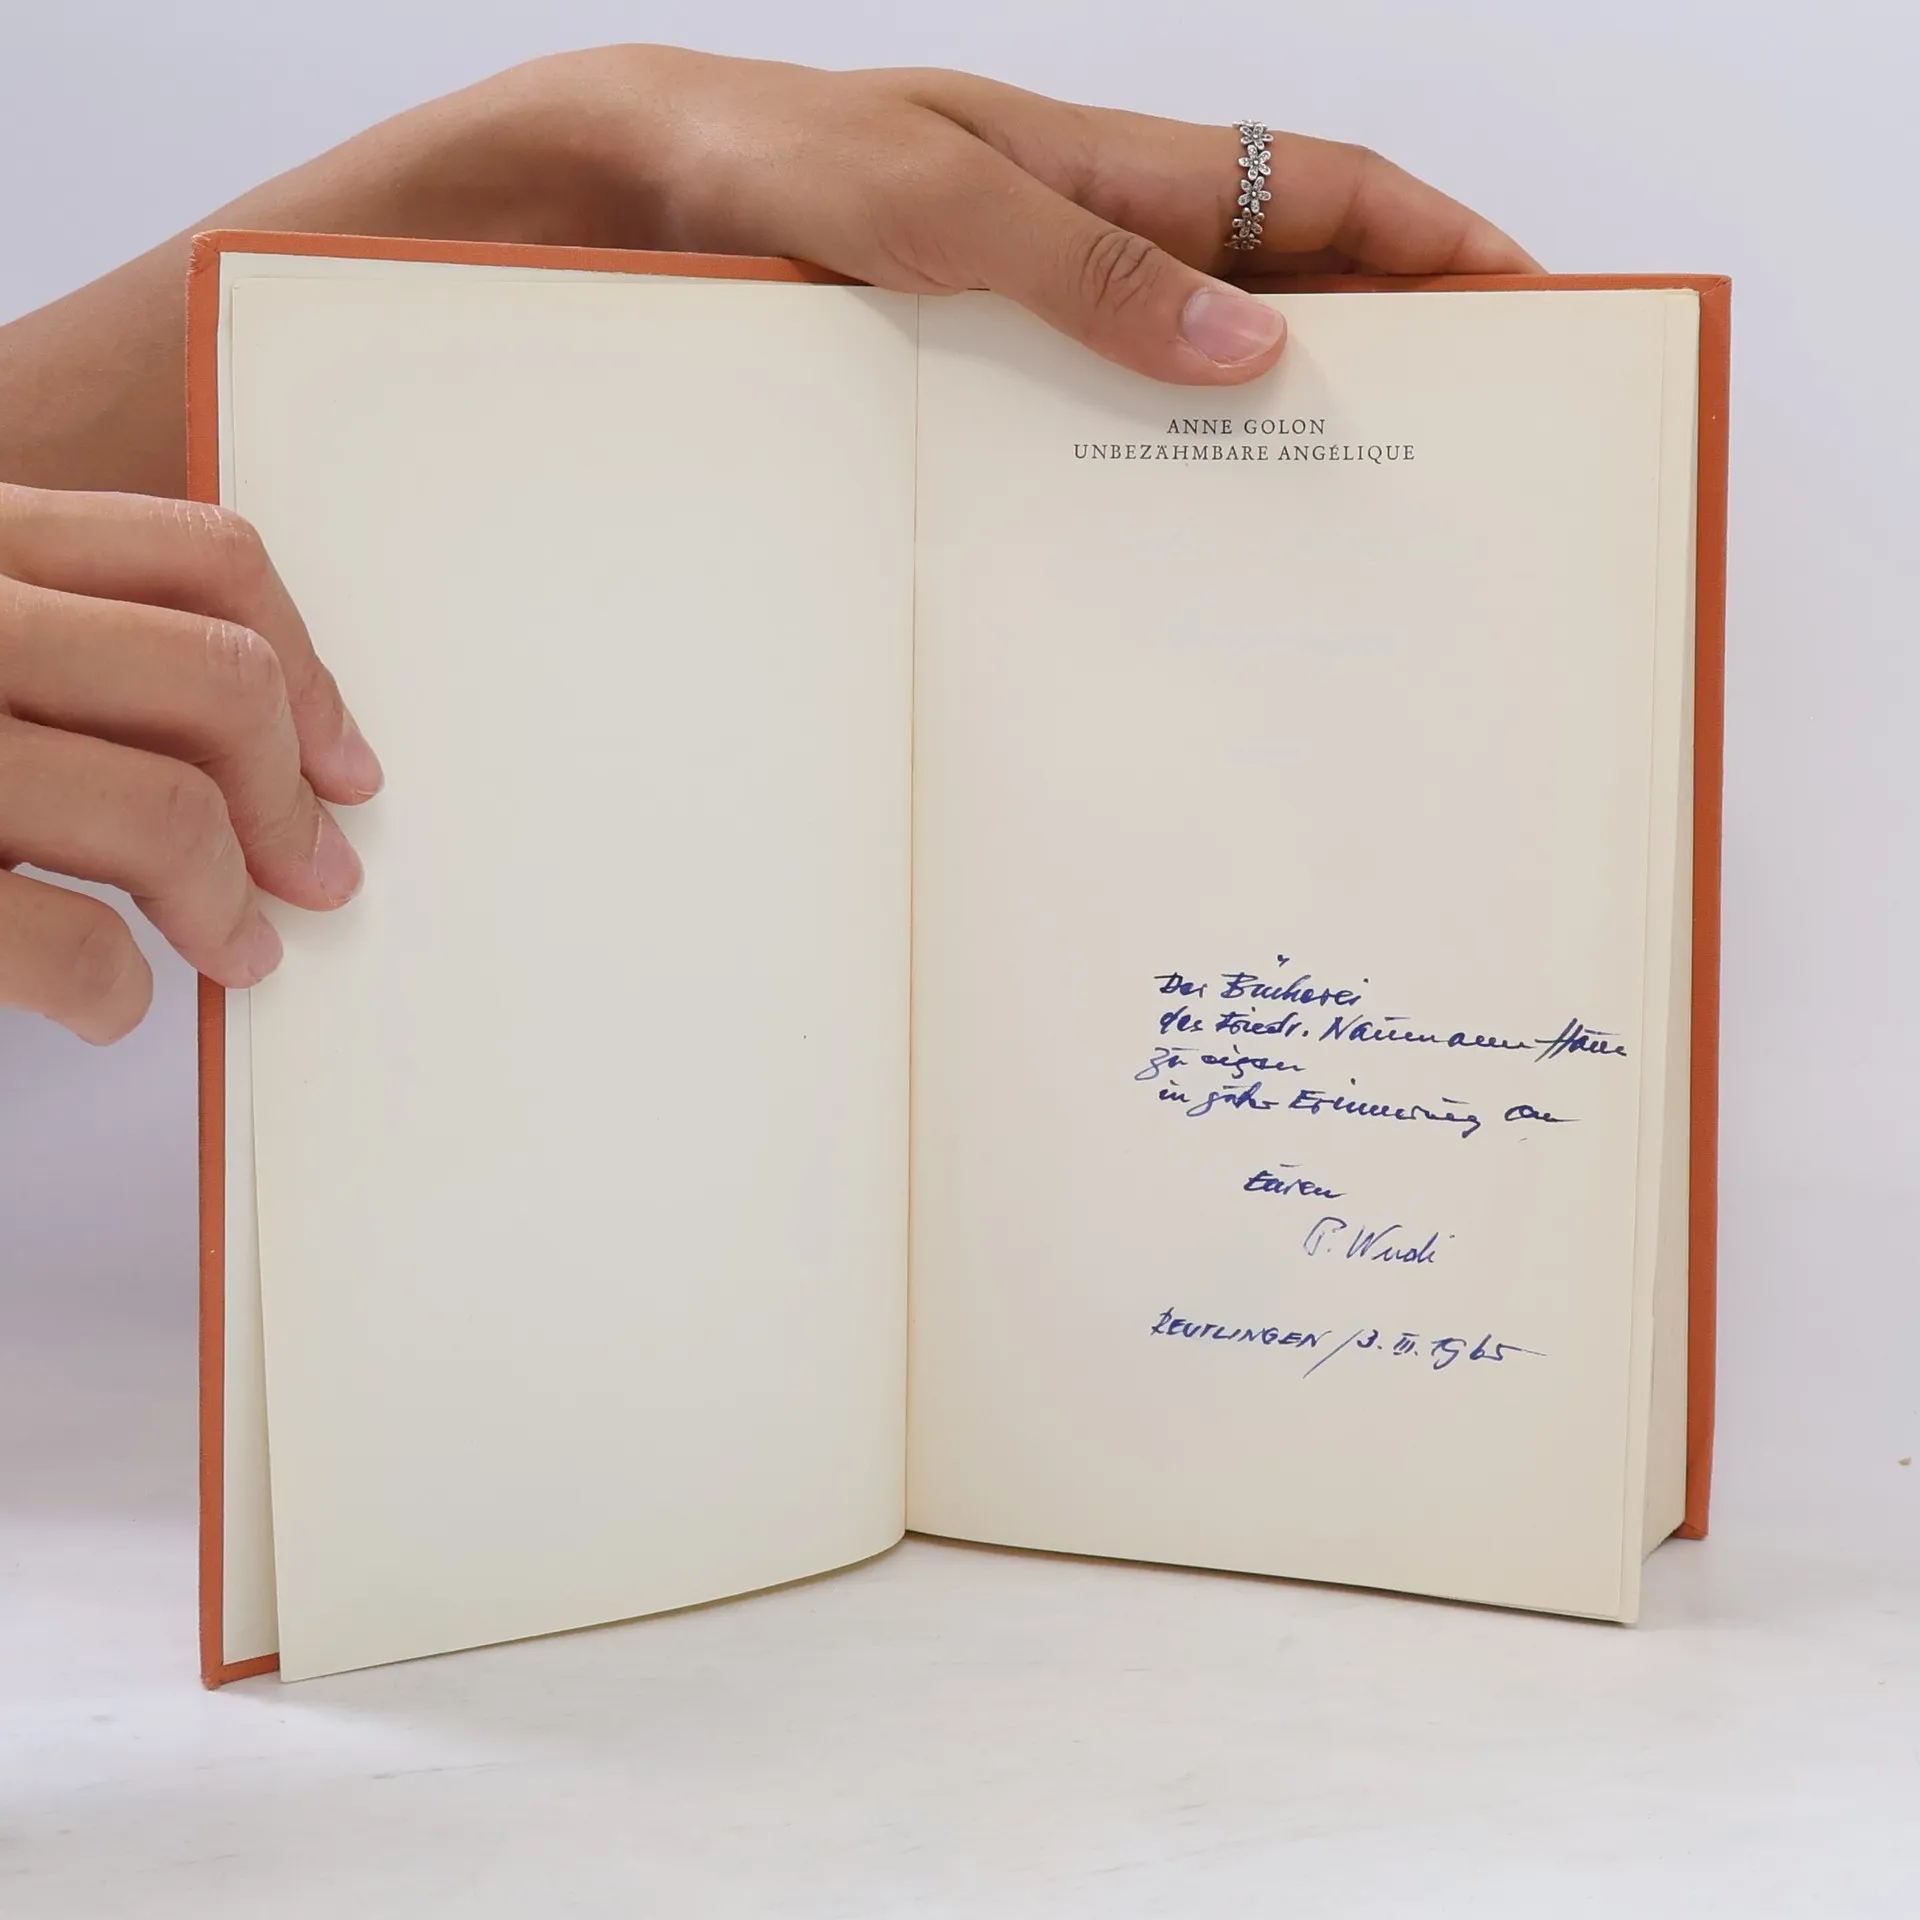 ANNE GOLON
UNBEZÄHMBARE ANGÉLIQUE
Der Bücherei
des Friedr. Naumann-Haus
zu eigen
in guter Erinnerung an
Euren
P.
REUTLINGEN / 3. III. 1965